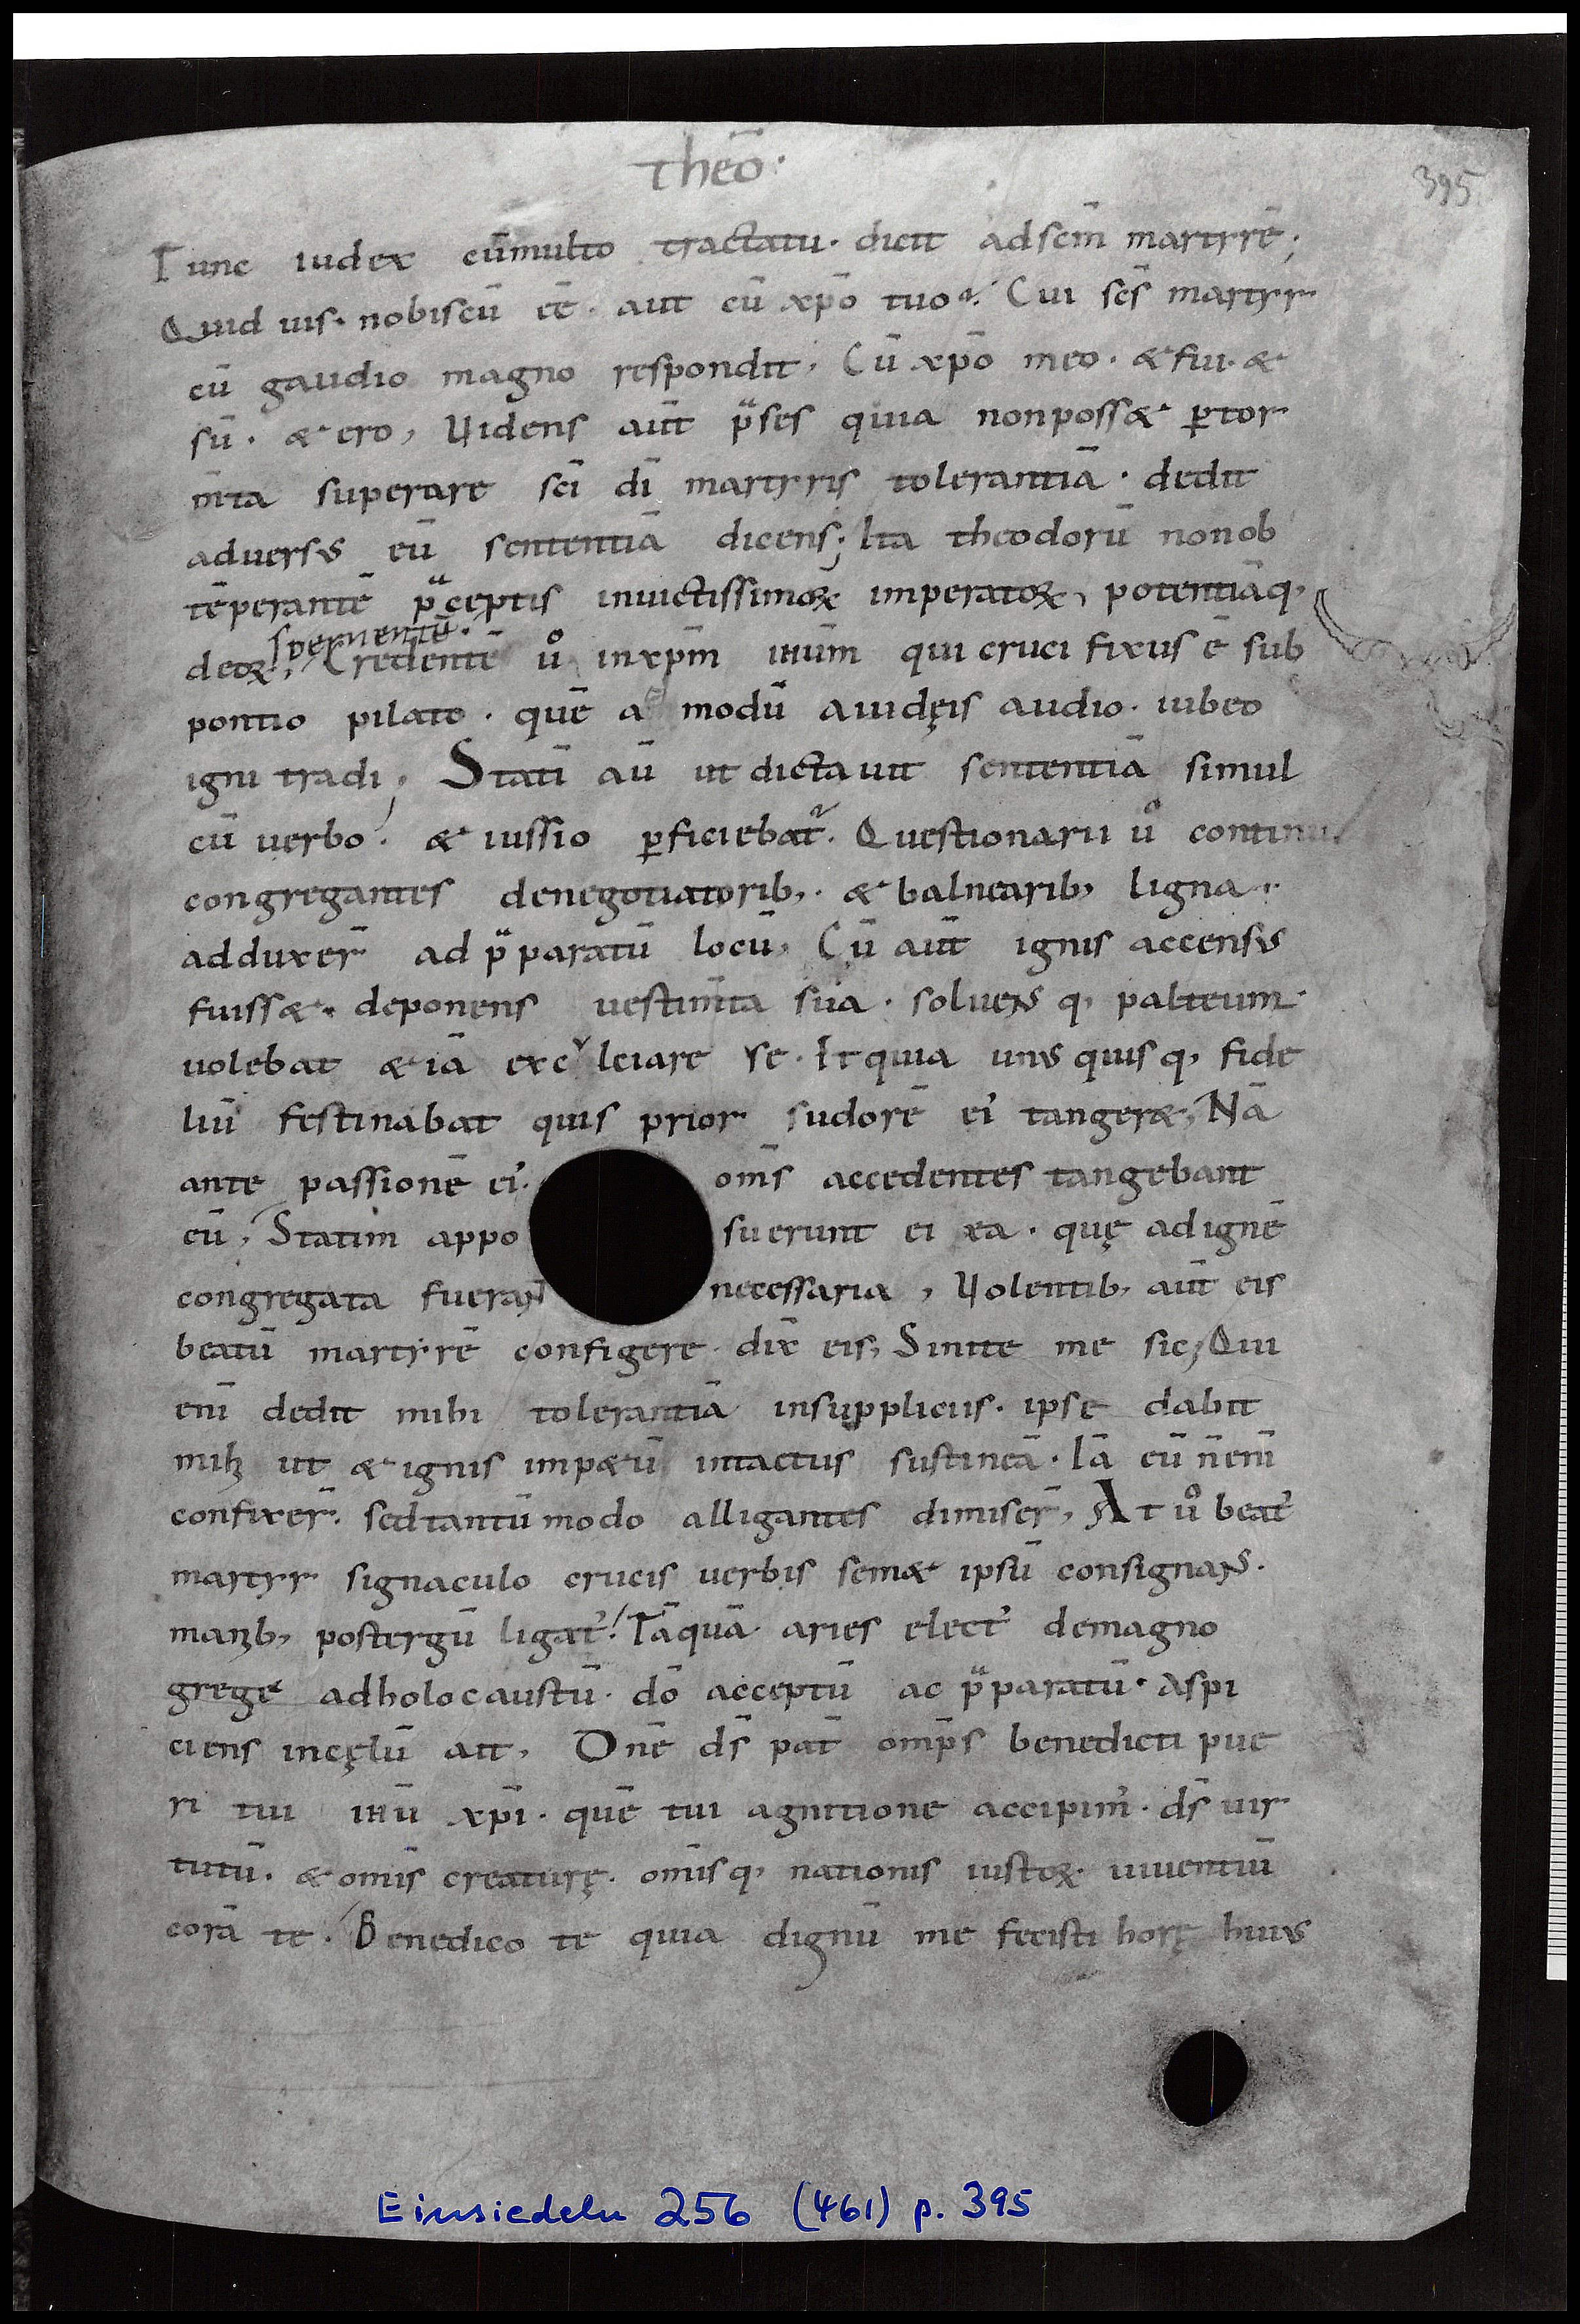 theō·
395
Tunc iudex cūmulto tractatu· dicit adscm̄ martyrē;
Quid uis· nobiscū eē· aut cū xpō tuo? Cui scs̄ martyr
cū gaudio magno respondit; Cū xpō meo· & fui· &
sū· & ero, Uidens aut̄ p̄ses quia nonposs& ꝑtor
m̄ta superare sc̄i dī martyris tolerantiā· dedit
aduersus eū sententiā dicens; Ita theodorū nonob
tēperantē p̄ceptis inuictissimoꝝ imperatoꝝ, potentiāq,
spernentē·
deoꝝ, Credentē ů inxpm̄ ihūm qui crucifixus ē sub
pontio pilato· quē a modū auidęis audio· iubeo
igni tradi; Statī aū ut dictauit sententiā simul
cū uerbo· & iussio ꝑficiebat᷑· Questionarii ů continu
congregantes denegotiatorib,· & balnearib, ligna·
adduxer̄ ad p̄paratū locū, Cū aut̄ ignis accensus
fuiss&· deponens uestim̄ta sua· soluens q, palteum·
uolebat &iā exc leiare se· Et quia unus quisq, fide
liū festinabat quis prior sudorē ei᾽ tanger&, Nā
ante passionē ei᾽· om̄s accedentes tangebant
eū, Statim appo suerunt ei ea· quę adignē
congregata fuerant necessaria, Uolentib, aut̄ eis
beatū martyrē configere· dix̄ eis, Sinite me sic, Qui
eni̅ dedit mihi tolerantiā insuppliciis· ipse dabit
mihꝫ ut & ignis imp&ū intactus sustineā· Iā eū n̄ enī
confixer̄· sedtantūmodo alligantes dimiser̄, At ů beat᾽
martyr signaculo crucis uerbis sem& ipsū consignans·
manib, postergū ligat᾽· Tāquā aries elect᾽ demagno
grege adholocaustū· dō acceptū ac p̄paratū· Aspi
ciens incęlū ait, Dnē ds̄ pat̄ omp̄s benedicti pue
ri tui ihū xpī· quē tui agnitione accipim᾽· ds̄ uir
tutū· & om̄is creaturę· om̄isq, nationis iustoꝝ· uiuentiū
corā te· Benedico te quia dignū me fecisti horę huius
Einsiedeln 256 (461) p. 395